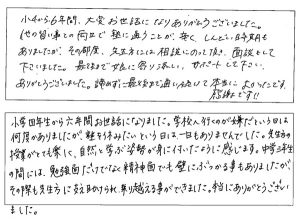 小4から6年間、大変お世話になりありがとうございました。
他の習い事との両立で塾に通うことが、辛く、しんどい時期も
ありましたが、その都度、先生方には相談にのって頂き、面談をして
下さいました。最後まで親身に寄り添い、サポートして下さり、
ありがとうございました。諦めずに最後まで通い続けて本当によかったです。
感謝です!!
小学四年生から六年間お世話になりました。学校へ行くのが嫌だという日は
何度もありましたが、塾を休みたいという日は一日もありませんでした。先生方の
授業がとても楽しく、自然と学ぶ姿勢が身に付いたように感じます。中学三年生
の間には、勉強面だけでなく精神面でも壁にぶつかる事もありましたが、
その際も先生方に支え助けられ、乗り越える事ができました。本当にありがとうござい
ました。